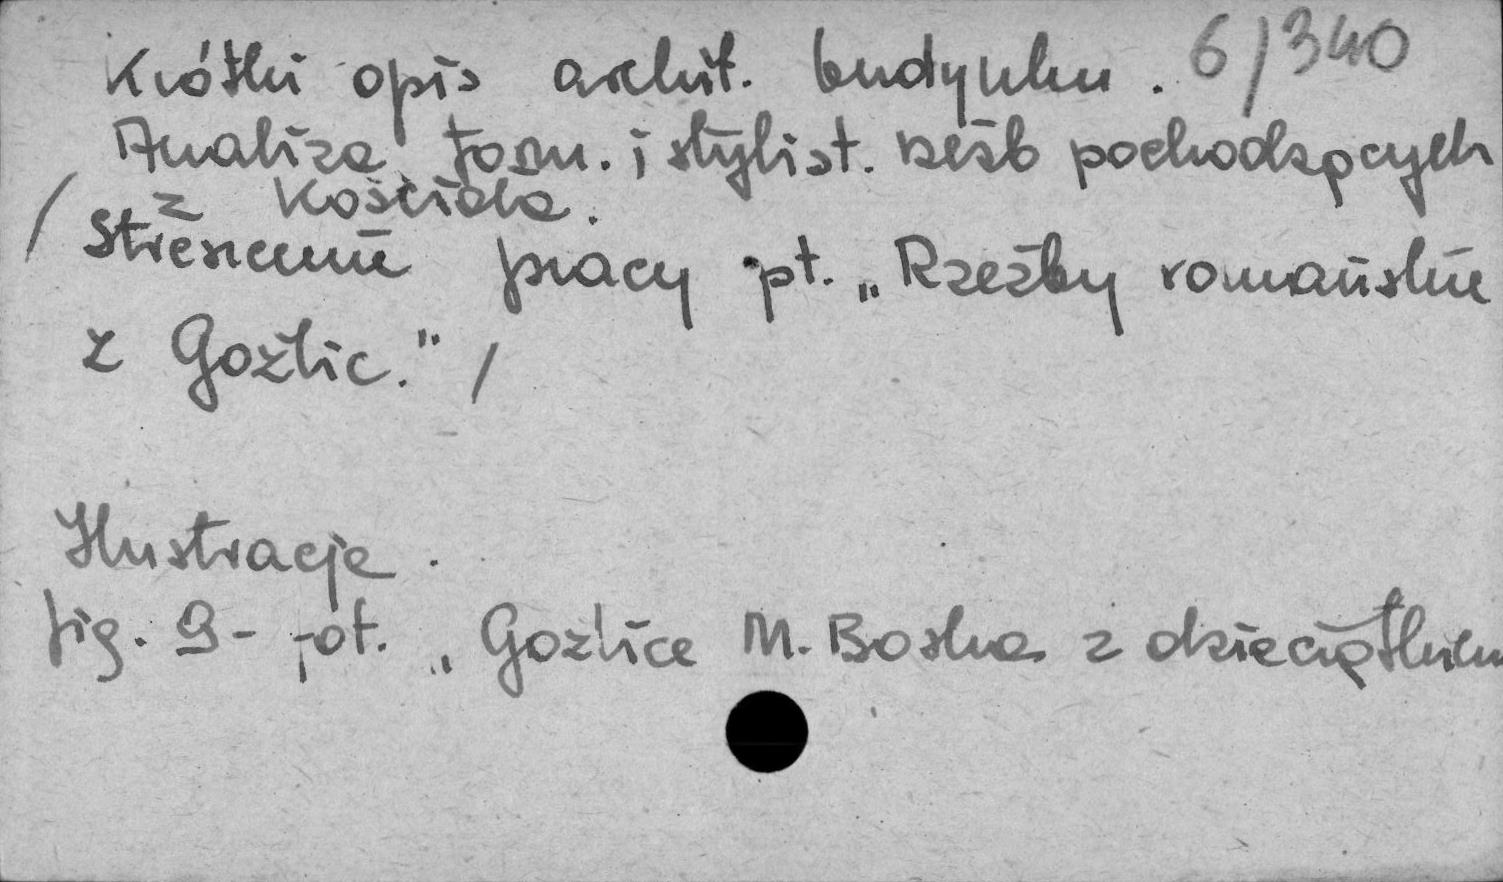 Krótki opis archit. budynku. 6/340
Analiza form. i stylist. rzeźb pochodzących
z kościoła.
/ Streszczenie pracy pt. „Rzeźby romańskie
z Goźlic." /
Ilustracje.
fig. 9 - fot. „Goźlice M. Boska z dzieciątkiem